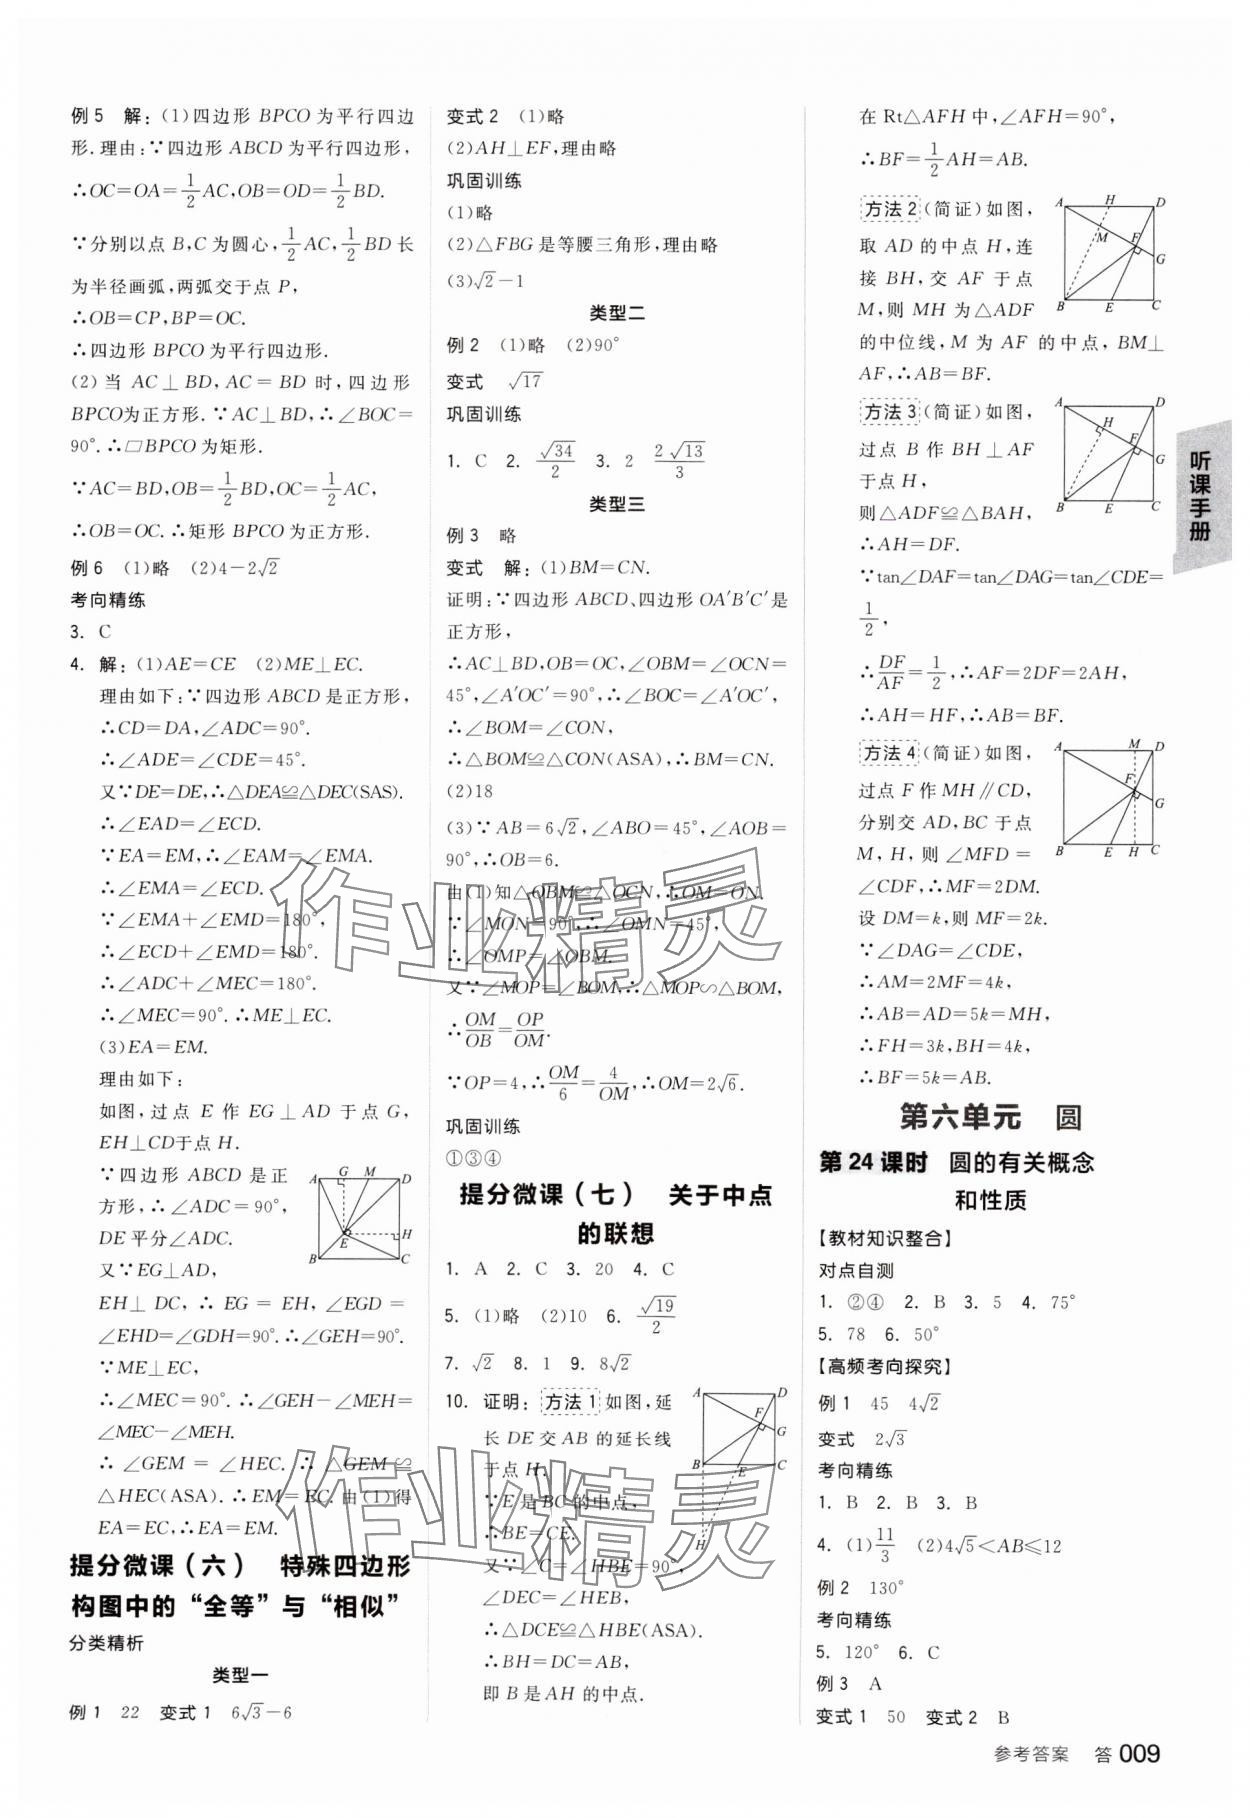 例5 解:(1)四边形 BPCO 为平行四边
形.理由:∵四边形 ABCD 为平行四边形,
∴OC=OA=1/2 AC,OB=OD=1/2 BD.
∵分别以点 B,C 为圆心,1/2 AC,1/2 BD 长
为半径画弧,两弧交于点 P,
∴OB=CP,BP=OC.
∴四边形 BPCO 为平行四边形.
(2)当 AC⊥BD,AC=BD 时,四边形
BPCO为正方形.∵AC⊥BD,∴∠BOC=
90°.∴▱BPCO 为矩形.
∵AC=BD,OB=1/2 BD,OC=1/2 AC,
∴OB=OC.∴矩形 BPCO 为正方形.
例6 (1)略 (2)4-2√2
考向精练
3. C
4. 解:(1)AE=CE (2)ME⊥EC.
理由如下:∵四边形 ABCD 是正方形,
∴CD=DA,∠ADC=90°.
∴∠ADE=∠CDE=45°.
又∵DE=DE,∴△DEA≌△DEC(SAS).
∴∠EAD=∠ECD.
∵EA=EM,∴∠EAM=∠EMA.
∴∠EMA=∠ECD.
∵∠EMA+∠EMD=180°,
∴∠ECD+∠EMD=180°.
∴∠ADC+∠MEC=180°.
∴∠MEC=90°.∴ME⊥EC.
(3)EA=EM.
理由如下:
如图,过点 E 作 EG⊥AD 于点 G,
EH⊥CD于点 H.
∵四边形 ABCD 是正
方形,∴∠ADC=90°,
DE平分∠ADC.
又∵EG⊥AD,
A G M D
E H
B C
EH⊥DC,∴EG=EH,∠EGD=
∠EHD=∠GDH=90°.∴∠GEH=90°.
∵ME⊥EC,
∴∠MEC=90°.∴∠GEH-∠MEH=
∠MEC-∠MEH.
∴∠GEM=∠HEC.∴△GEM≌
△HEC(ASA).∴EM=EC.由(1)得
EA=EC,∴EA=EM.
提分微课(六) 特殊四边形
构图中的“全等”与“相似”
分类精析
类型一
例1 22 变式1 6√3-6
变式2 (1)略
(2)AH⊥EF,理由略
巩固训练
(1)略
(2)△FBG是等腰三角形,理由略
(3)√2-1
类型二
例2 (1)略 (2)90°
变式 √17
巩固训练
1. C 2. √34/2 3. 2 2√13/3
类型三
例3 略
变式 解:(1)BM=CN.
证明:∵四边形 ABCD、四边形 OA′B′C′是
正方形,
∴AC⊥BD,OB=OC,∠OBM=∠OCN=
45°,∠A′OC′=90°,∴∠BOC=∠A′OC′,
∴∠BOM=∠CON,
∴△BOM≌△CON(ASA),∴BM=CN.
(2)18
(3)∵AB=6√2,∠ABO=45°,∠AOB=
90°,∴OB=6.
由(1)知△OBM≌△OCN,∴OM=ON.
∵∠MON=90°,∴∠OMN=45°,
∴∠OMP=∠OBM.
又∵∠MOP=∠BOM,∴△MOP∽△BOM,
∴OM/OB=OP/OM.
∵OP=4,∴OM/6=4/OM,∴OM=2√6.
巩固训练
①③④
提分微课(七) 关于中点
的联想
1. A 2. C 3. 20 4. C
5. (1)略 (2)10 6. √19/2
7. √2 8. 1 9. 8√2
10. 证明:方法1 如图,延
长 DE交 AB 的延长线
于点 H.
∵E 是 BC 的中点,
∴BE=CE.
又∵∠C=∠HBE=90°,
∠DEC=∠HEB,
A D
F
G
B E C
H
∴△DCE≌△HBE(ASA).
∴BH=DC=AB,
即 B 是 AH 的中点.
在 Rt△AFH 中,∠AFH=90°,
∴BF=1/2 AH=AB.
方法2 (简证)如图,
取 AD 的中点 H,连
接 BH,交 AF 于点
M,则 MH 为△ADF
A H D
M F
G
B E C
的中位线,M 为 AF 的中点,BM⊥
AF,∴AB=BF.
方法3 (简证)如图,
过点 B 作 BH⊥AF
于点 H,
则△ADF≌△BAH,
A D
H F
G
B E C
∴AH=DF.
∵tan∠DAF=tan∠DAG=tan∠CDE=
1/2,
∴DF/AF=1/2,∴AF=2DF=2AH,
∴AH=HF,∴AB=BF.
方法4 (简证)如图,
过点 F 作 MH∥CD,
分别交 AD,BC 于点
M,H,则∠MFD=
A M D
F
G
B E H C
∠CDF,∴MF=2DM.
设 DM=k,则 MF=2k.
∵∠DAG=∠CDE,
∴AM=2MF=4k,
∴AB=AD=5k=MH,
∴FH=3k,BH=4k,
∴BF=5k=AB.
第六单元 圆
第24课时 圆的有关概念
和性质
【教材知识整合】
对点自测
1. ②④ 2. B 3. 5 4. 75°
5. 78 6. 50°
【高频考向探究】
例1 45 4√2
变式 2√3
考向精练
1. B 2. B 3. B
4. (1)11/3 (2)4√5<AB≤12
例2 130°
考向精练
5. 120° 6. C
例3 A
变式1 50 变式2 B
听课手册
参考答案 答 009
作业精灵
作业精灵